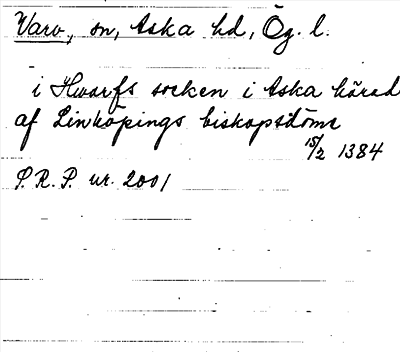 Varv, sn, Aska hd, Ög. l.
i Hwarfs socken i Aska härad
af Linköpings biskopsdöme
15/2 1384
S. R. P. nr. 2001